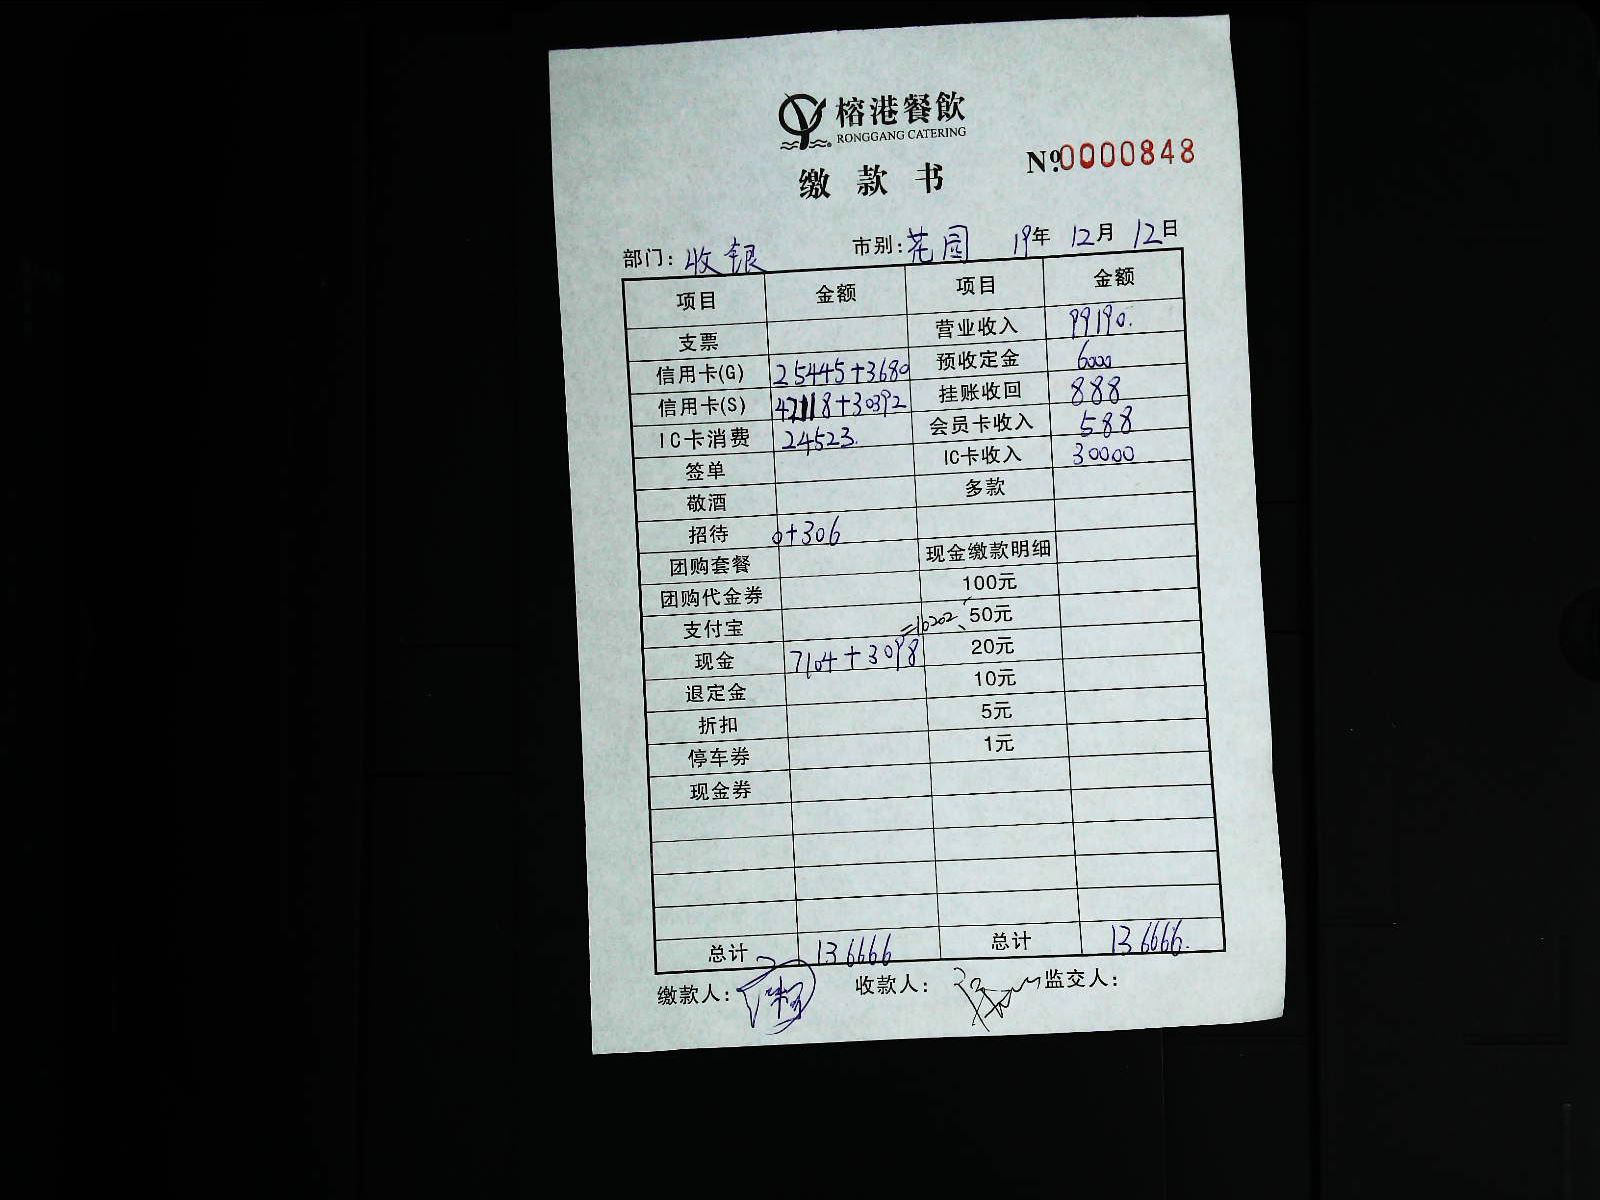 榕港餐飲
RONGGANG CATERING
缴款书 №0000848
部门: 收银 市别: 花园 19年 12月 12日
项目 金额 项目 金额
支票 营业收入 99190.
信用卡(G) 25445+3680 预收定金 6000
信用卡(S) 42118+30392 挂账收回 888
IC卡消费 24523. 会员卡收入 588
签单 IC卡收入 30000
敬酒 多款
招待 0+306
团购套餐 现金缴款明细
团购代金券 100元
支付宝 =10202 50元
现金 7104+3098 20元
退定金 10元
折扣 5元
停车券 1元
现金券
总计 136666 总计 136666.
缴款人: 收款人: 监交人: